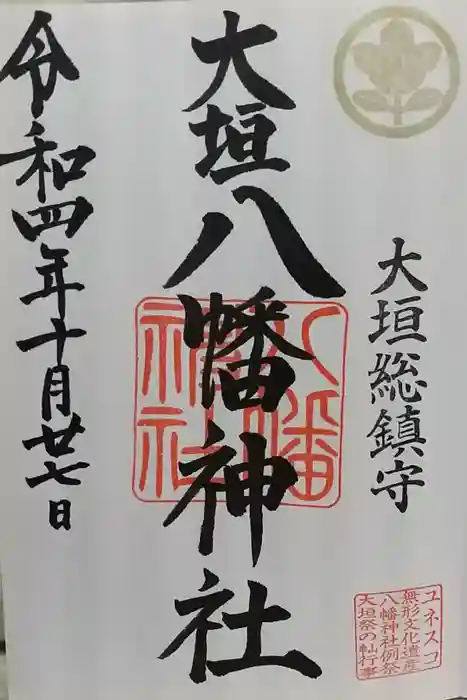 大垣総鎮守
大垣八幡神社
八幡神社
令和四年十月廿七日
ユネスコ
無形文化遺産
八幡神社例祭
大垣祭の軕行事